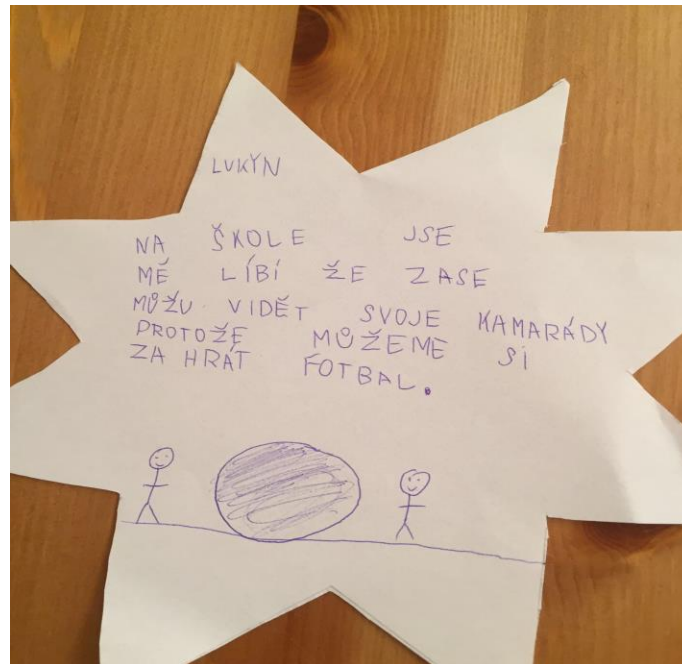 LUKYN
NA ŠKOLE JSE
MĚ LÍBÍ ŽE ZASE
MŮŽU VIDĚT SVOJE KAMARÁDY
PROTOŽE MŮŽEME SI
ZA HRÁT FOTBAL.